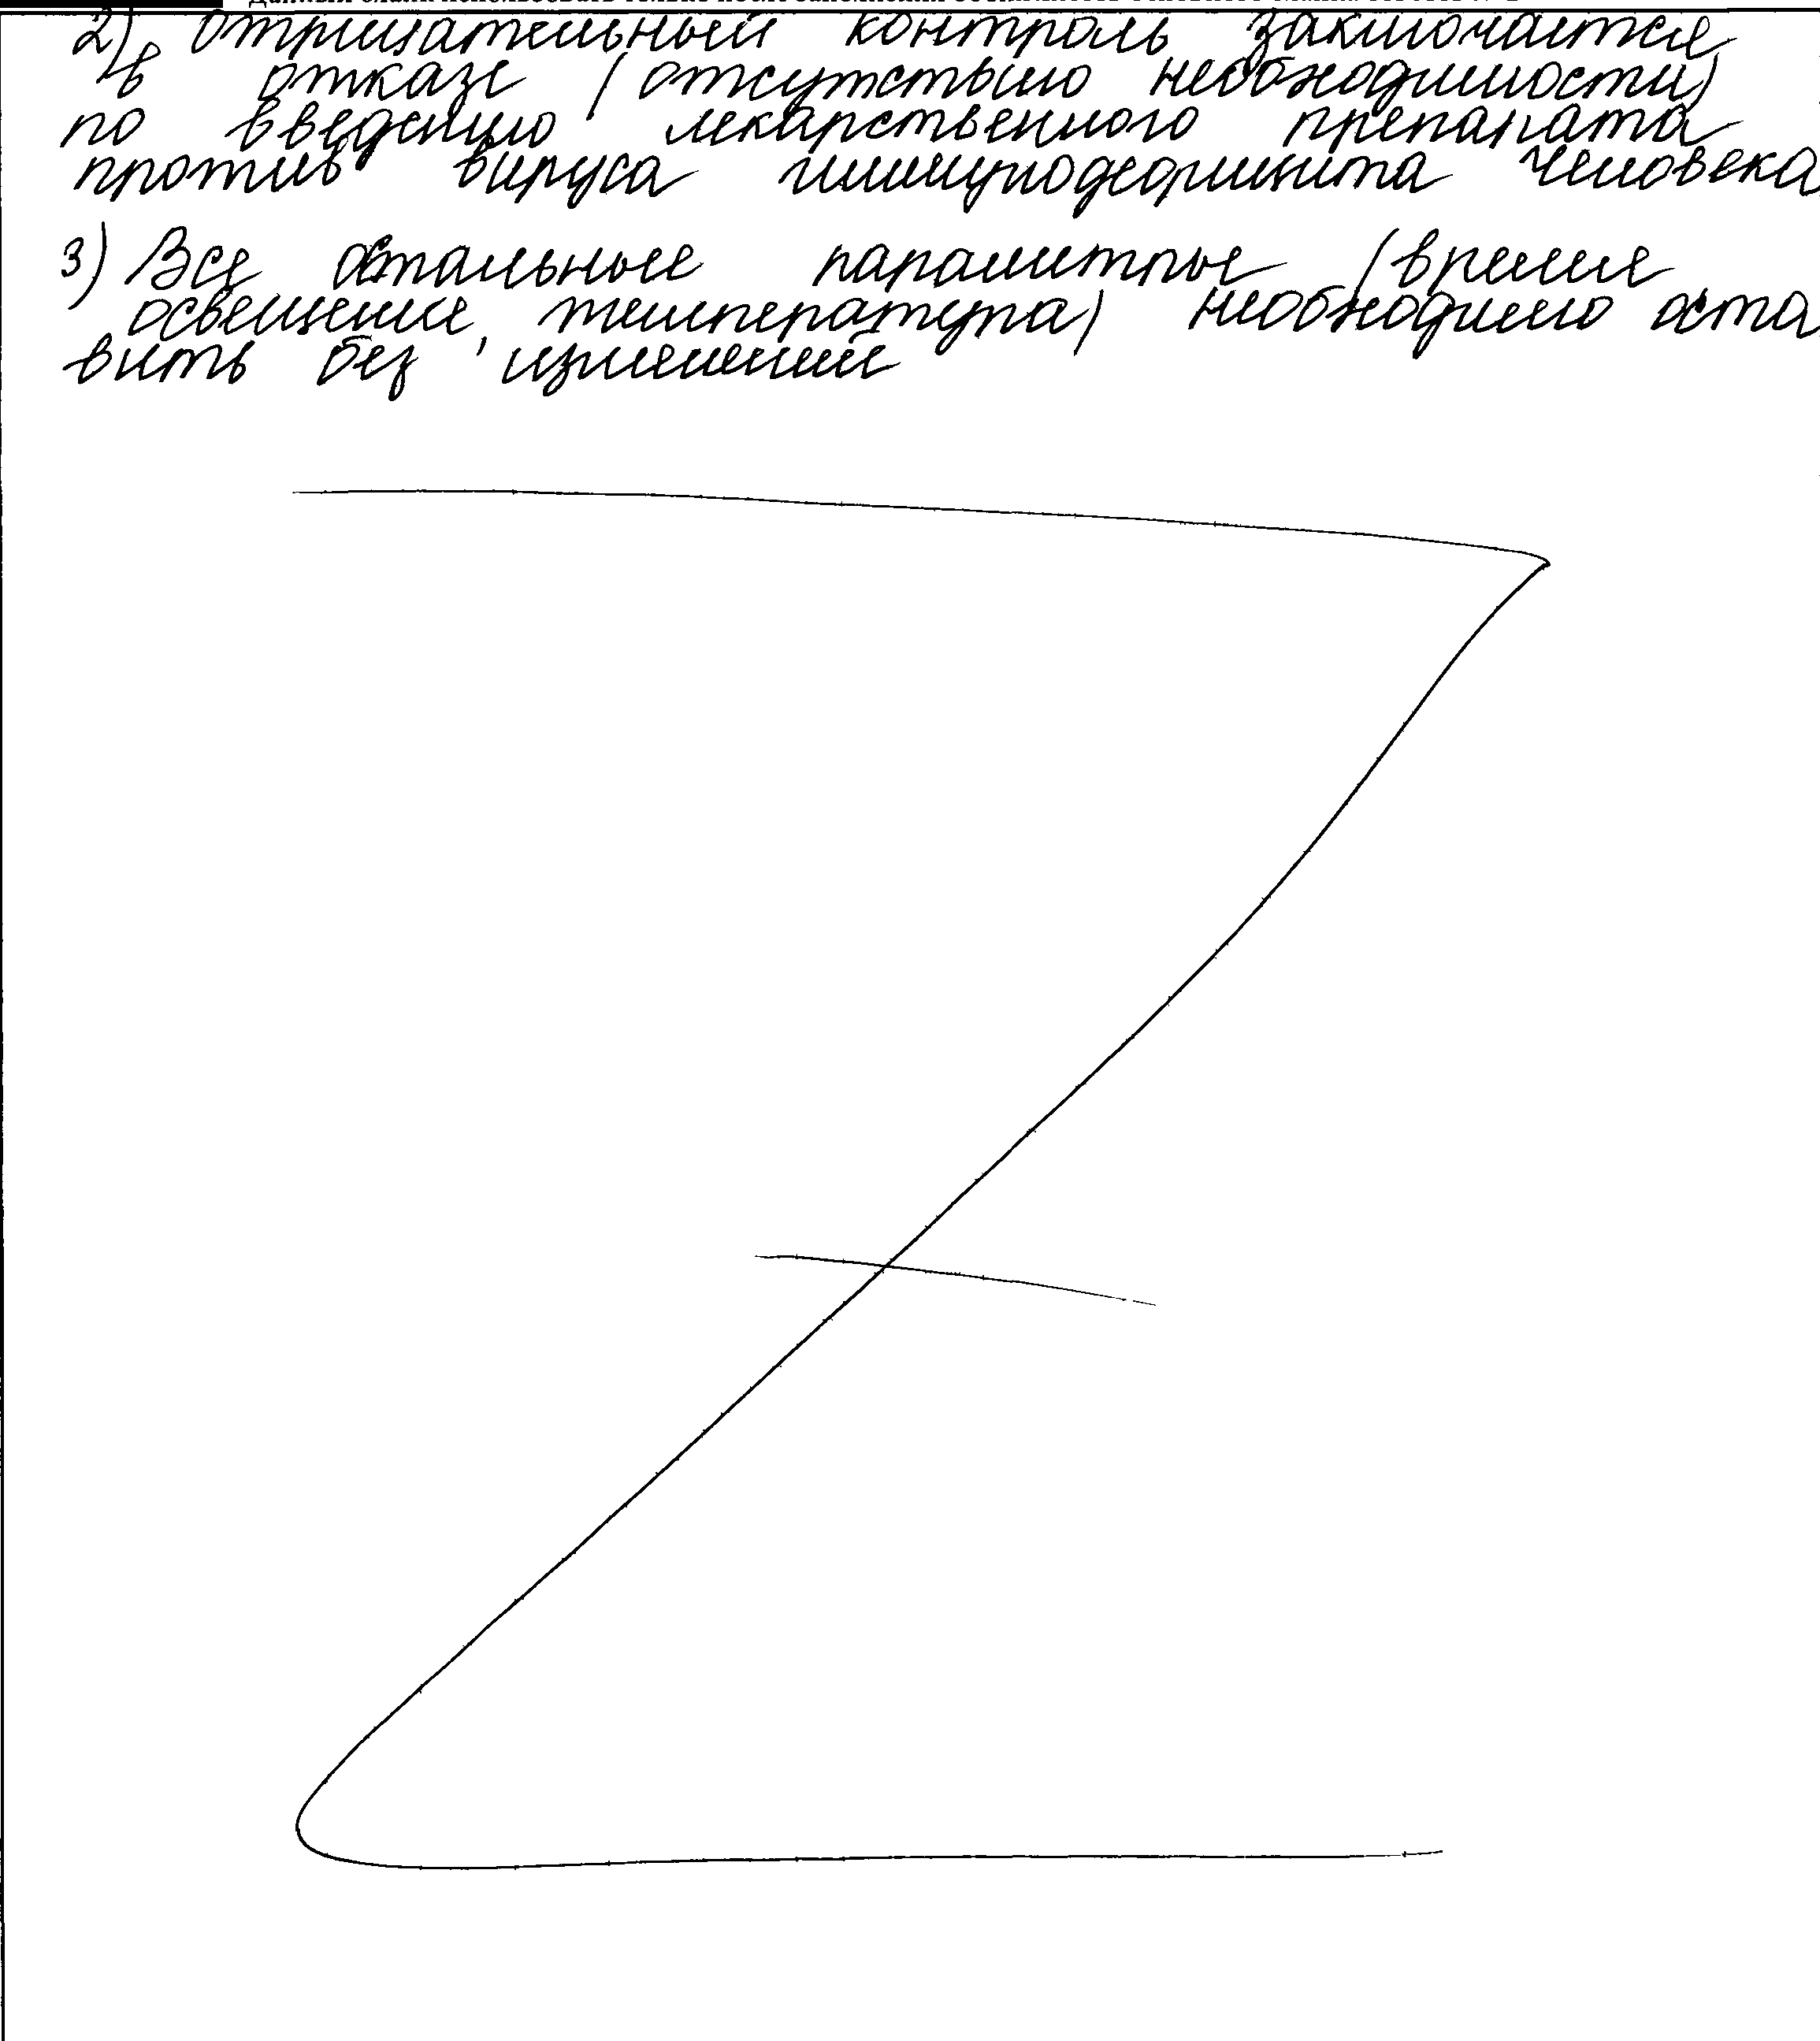 2) Отрицательный контроль заключается
в отказе (отсутствию необходимости)
по введению лекарственного препарата
против вируса иммунодефицита человека
3) Все остальные параметры (время
освещение, температура) необходимо оста
вить без изменений